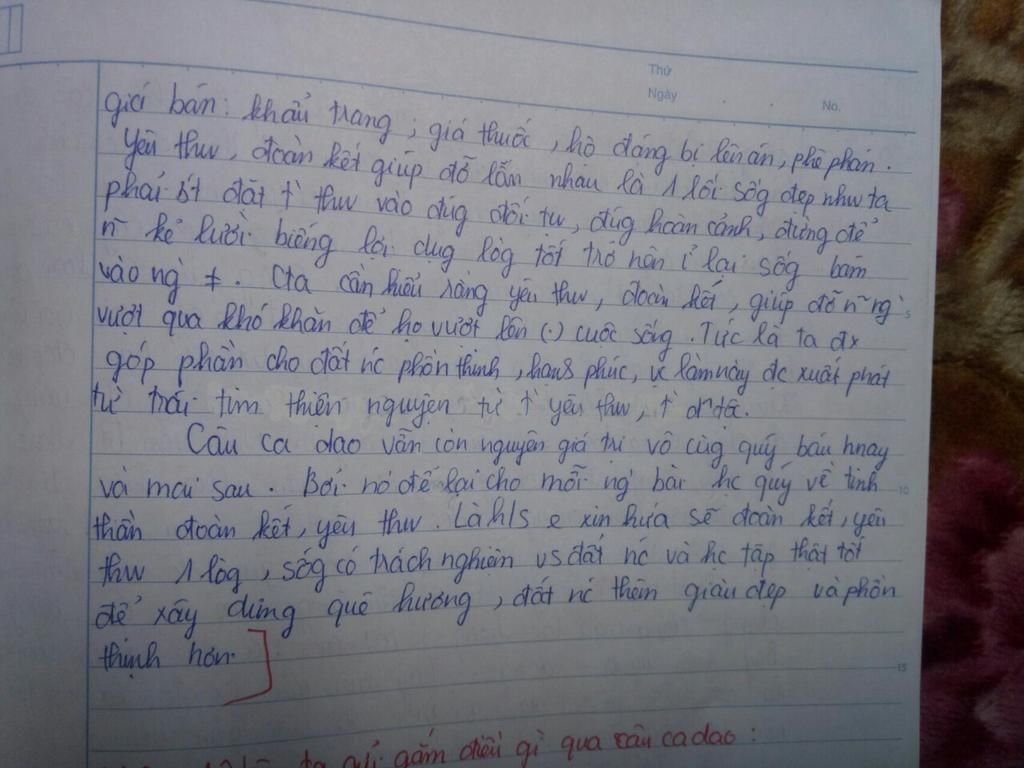 Thứ
Ngày
No.
giá bán: khẩu trang, giá thuốc, họ đáng bị lên án, phê phán.
Yêu thư, đoàn kết giúp đỡ lẫn nhau là 1 lối sốg đẹp như ta
phải đặt t` thư vào đúg đối tư, đúg hoàn cảnh, đừng để
n~ kẻ lười biếng lợi dụg lòg tốt trở nên ỉ lại sốg bám
vào ng ≠. Cta cần hiểu rằng yêu thư, đoàn kết, giúp đỡ n~ ng`
5
vượt qua khó khăn để họ vượt lên (.) cuộc sống. Tức là ta đx
góp phần cho đất nc phồn thịnh, hạnh phúc, vc làm này đc xuất phát
từ trái tim thiện nguyện từ t` yêu thư, t`
Câu ca dao vẫn còn nguyên giá trị vô cùg quý báu hnay
và mai sau. Bởi nó để lại cho mỗi ng` bài hc quý về tinh
10
thần đoàn kết, yêu thư. Là h/s e xin hứa sẽ đoàn kết, yêu
thư 1 lòg, sốg có trách nghiệm vs đất nc và hc tập thật tốt
để xây dựng quê hương, đất nc thêm giàu đẹp và phồn
thịnh hơn.
15
ta gửi gắm điều gì qua câu ca dao: